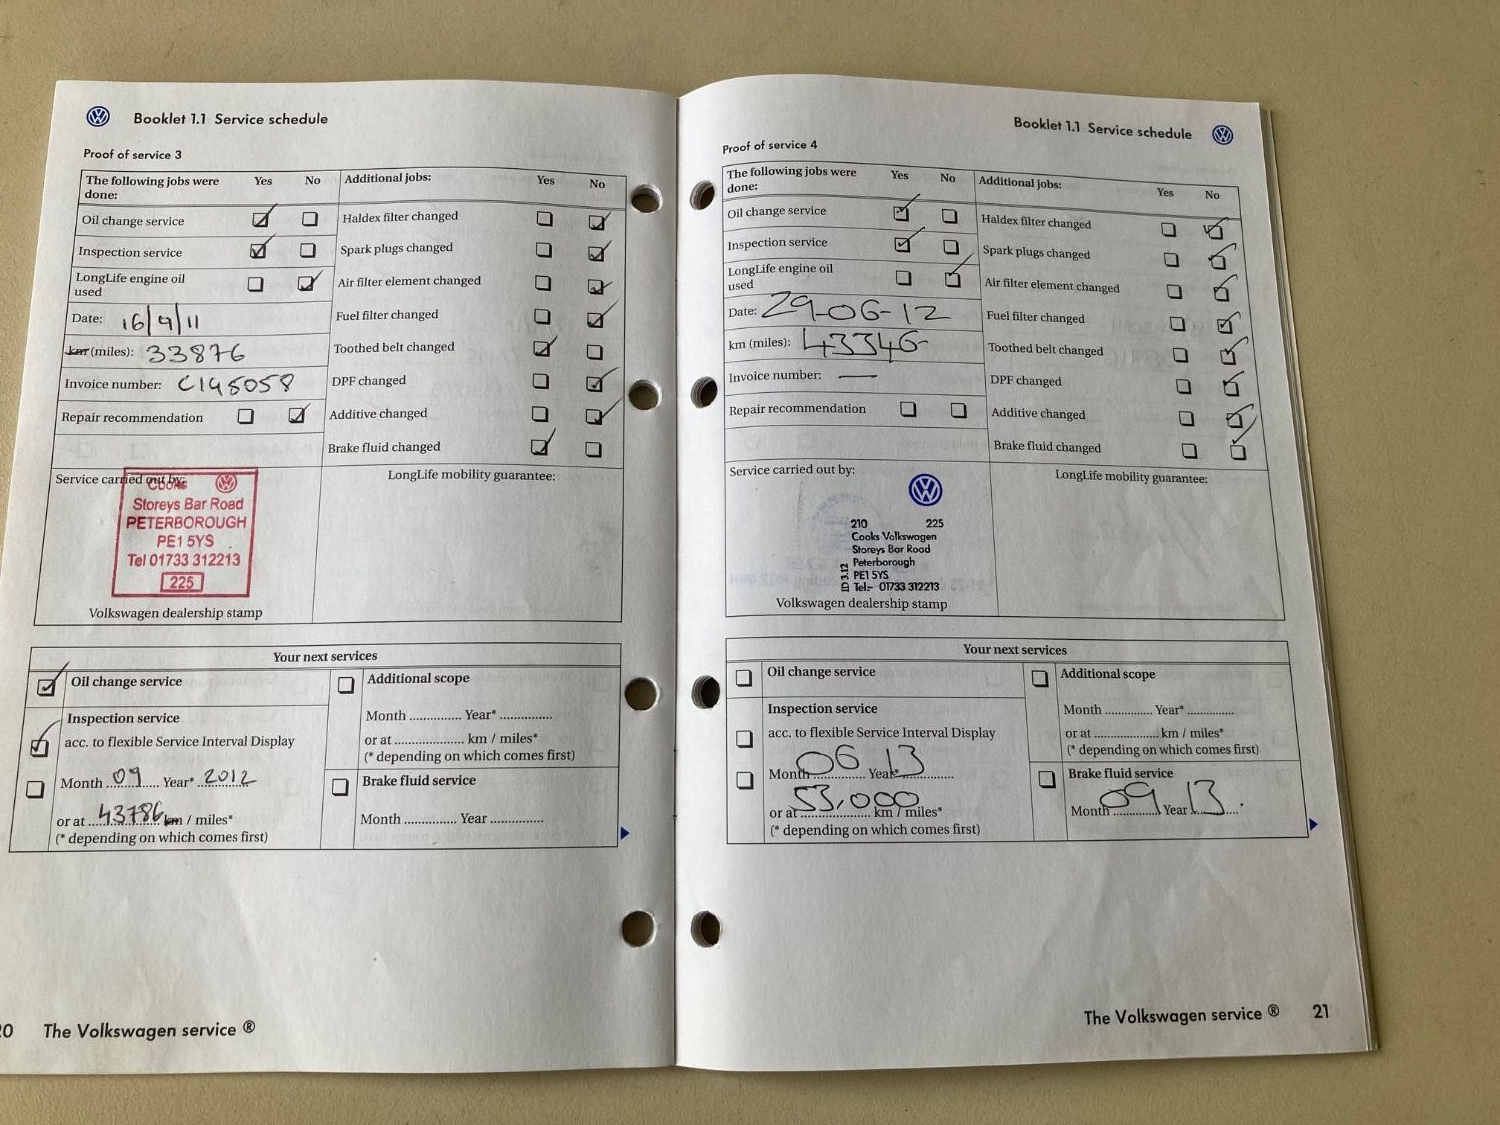 Booklet 1.1 Service schedule
Proof of service 3
The following jobs were done: Yes No Additional jobs: Yes No
Oil change service Haldex filter changed
Inspection service Spark plugs changed
LongLife engine oil used Air filter element changed
Date: 16/9/11 Fuel filter changed
km (miles): 33876 Toothed belt changed
Invoice number: C145058 DPF changed
Repair recommendation Additive changed
Brake fluid changed
Service carried out by: LongLife mobility guarantee:
COOKS
Storeys Bar Road
PETERBOROUGH
PE1 5YS
Tel 01733 312213
225
Volkswagen dealership stamp
Your next services
Oil change service Additional scope
Inspection service Month .............. Year* ..............
acc. to flexible Service Interval Display or at .................... km / miles*
(* depending on which comes first)
Month 09 Year* 2012 Brake fluid service
or at 43786 km / miles* Month .............. Year ..............
(* depending on which comes first)
20 The Volkswagen service ®
Booklet 1.1 Service schedule
Proof of service 4
The following jobs were done: Yes No Additional jobs: Yes No
Oil change service Haldex filter changed
Inspection service Spark plugs changed
LongLife engine oil used Air filter element changed
Date: 29-06-12 Fuel filter changed
km (miles): 43346 Toothed belt changed
Invoice number: — DPF changed
Repair recommendation Additive changed
Brake fluid changed
Service carried out by: LongLife mobility guarantee:
210 225
Cooks Volkswagen
Storeys Bar Road
Peterborough
PE1 5YS
Tel:- 01733 312213
ED 3.12
Volkswagen dealership stamp
Your next services
Oil change service Additional scope
Inspection service Month .............. Year* ..............
acc. to flexible Service Interval Display or at .................... km / miles*
(* depending on which comes first)
Month 06 Year* 13 Brake fluid service
or at 53,000 km / miles* Month 09 Year 13.
(* depending on which comes first)
The Volkswagen service ® 21